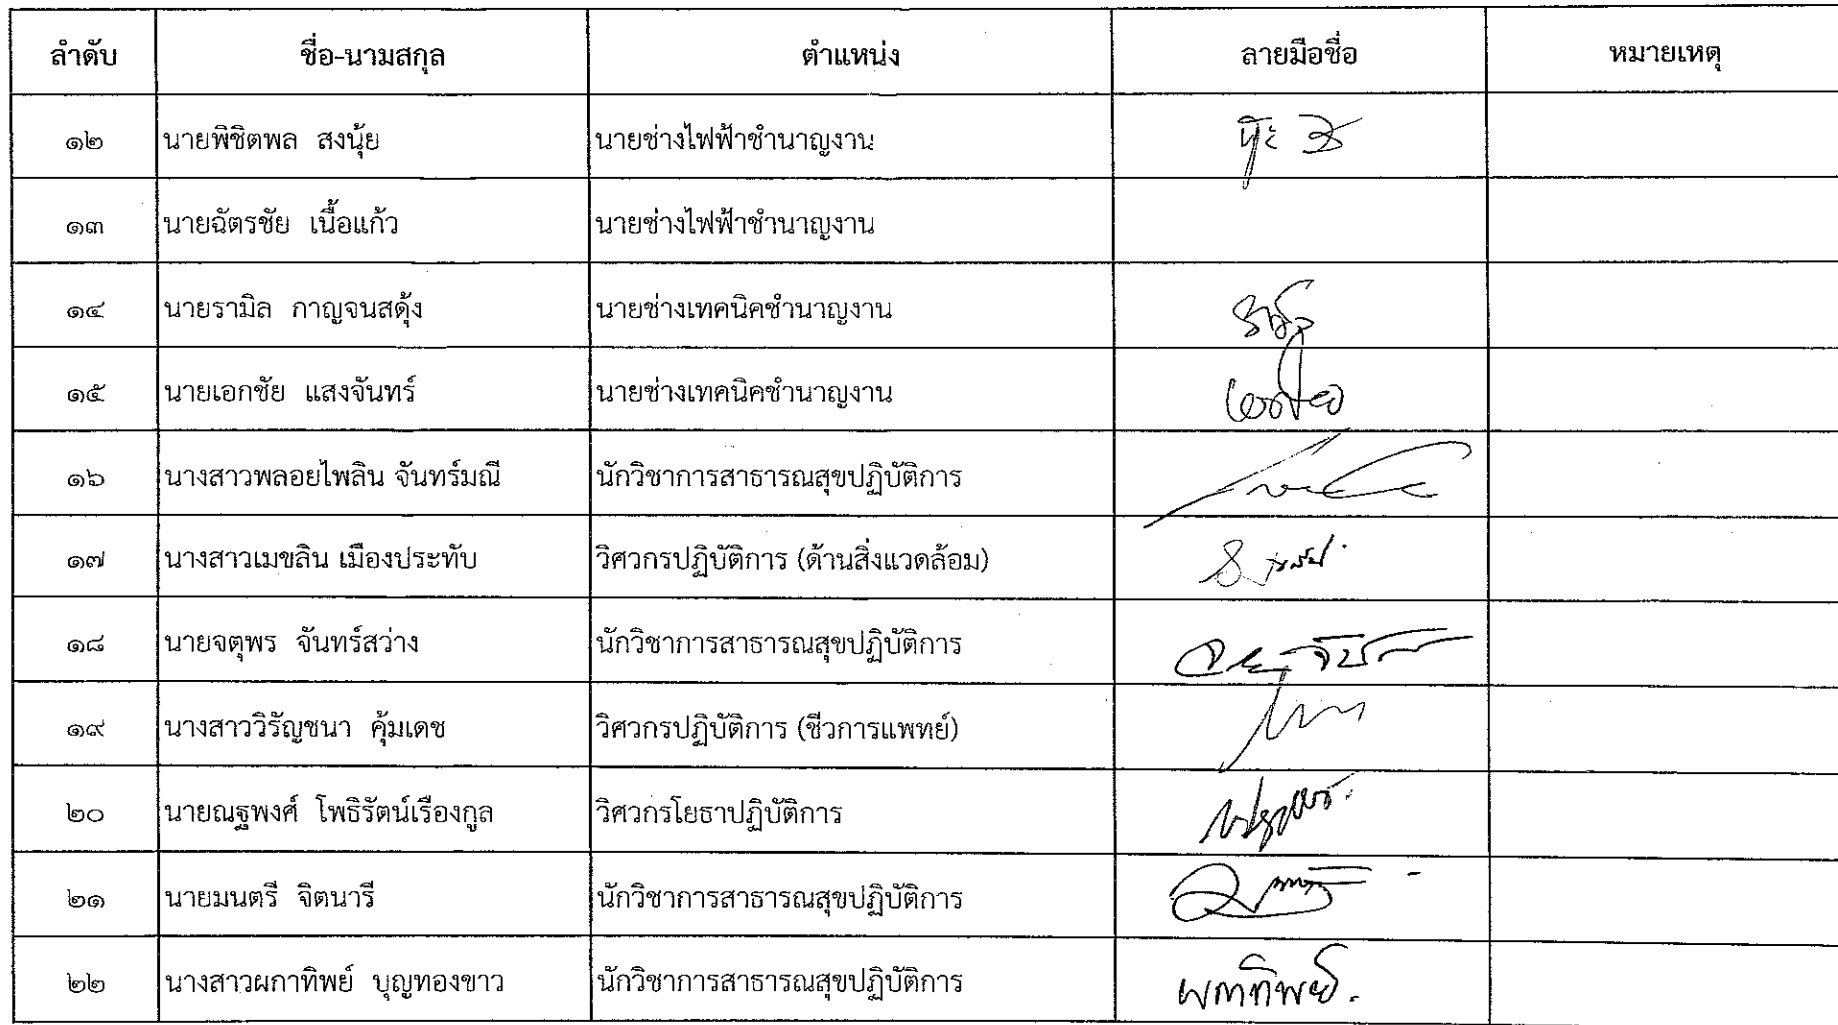 ลำดับ ชื่อ-นามสกุล ตำแหน่ง ลายมือชื่อ หมายเหตุ
๑๒ นายพิชิตพล สงนุ้ย นายช่างไฟฟ้าชำนาญงาน
๑๓ นายฉัตรชัย เนื้อแก้ว นายช่างไฟฟ้าชำนาญงาน
๑๔ นายรามิล กาญจนสดุ้ง นายช่างเทคนิคชำนาญงาน
๑๕ นายเอกชัย แสงจันทร์ นายช่างเทคนิคชำนาญงาน
๑๖ นางสาวพลอยไพลิน จันทร์มณี นักวิชาการสาธารณสุขปฏิบัติการ
๑๗ นางสาวเมขลิน เมืองประทับ วิศวกรปฏิบัติการ (ด้านสิ่งแวดล้อม)
๑๘ นายจตุพร จันทร์สว่าง นักวิชาการสาธารณสุขปฏิบัติการ
๑๙ นางสาววิรัญชนา คุ้มเดช วิศวกรปฏิบัติการ (ชีวการแพทย์)
๒๐ นายณฐพงศ์ โพธิรัตน์เรืองกูล วิศวกรโยธาปฏิบัติการ
๒๑ นายมนตรี จิตนารี นักวิชาการสาธารณสุขปฏิบัติการ
๒๒ นางสาวผกาทิพย์ บุญทองขาว นักวิชาการสาธารณสุขปฏิบัติการ ผกาทิพย์.